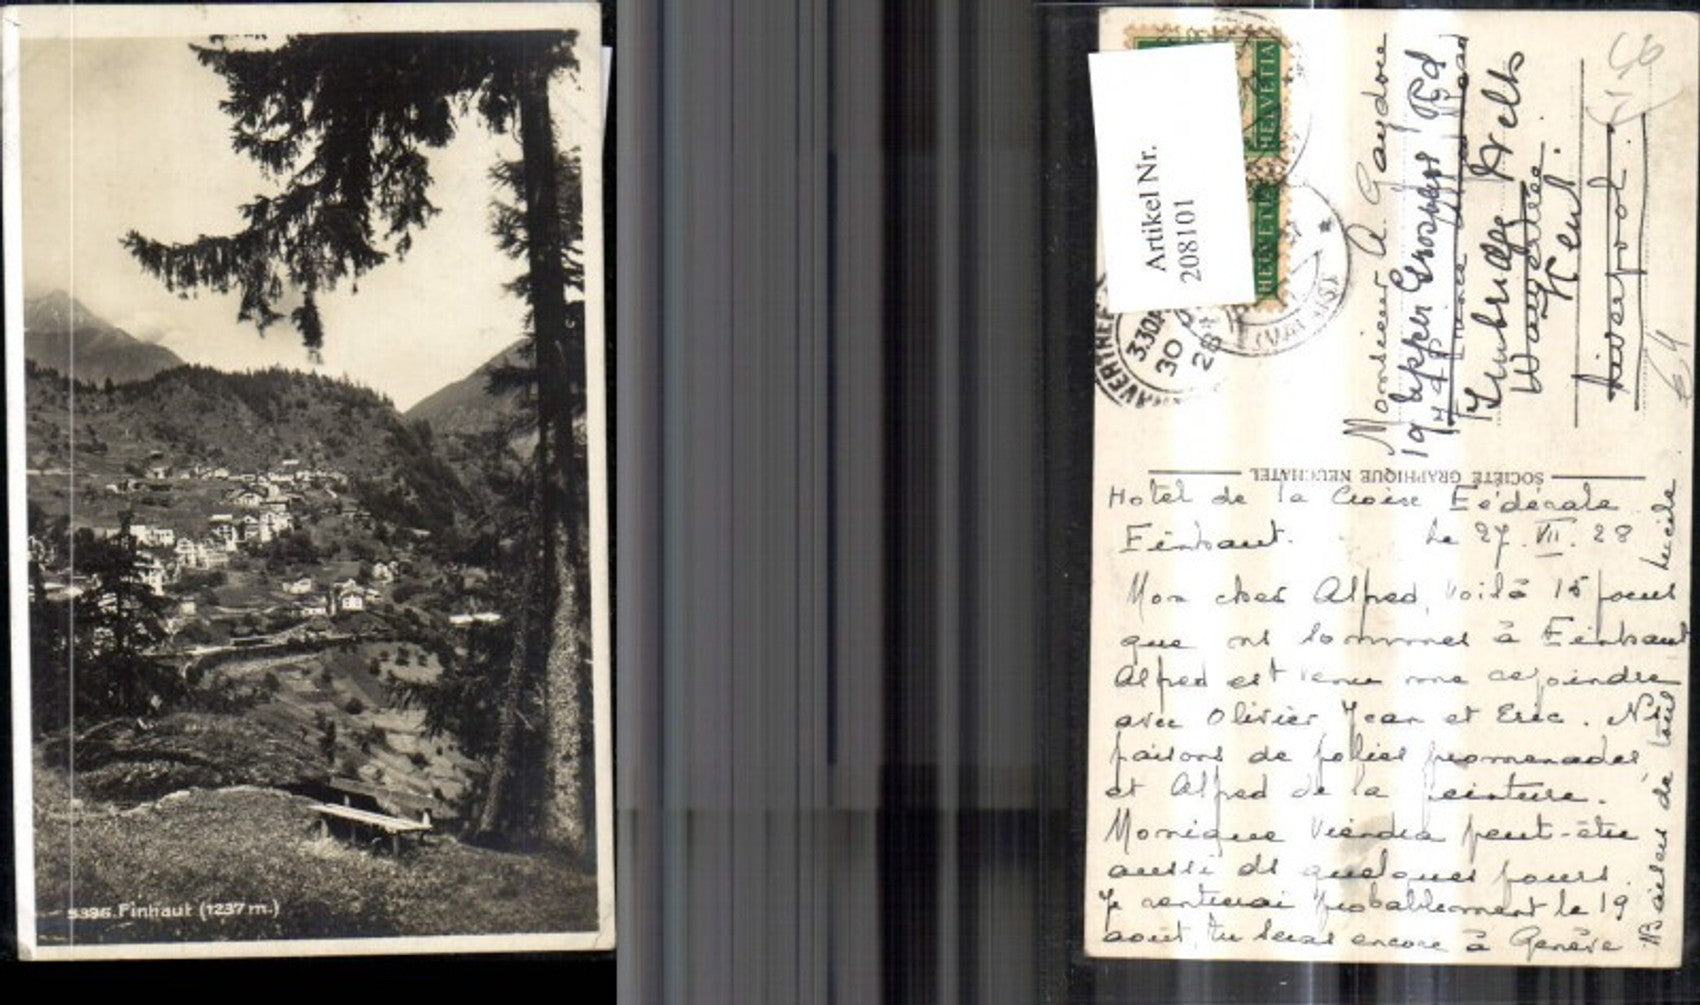 5396. Finhaut (1237 m.)
Artikel Nr.
208101
HELVETIA
HELVETIA
3 30
30
28
Monsieur A. Gaydou
19 Upper Grosvenor Rd
Tunbridge Wells
Kent.
Liverpool.
SOCIÉTÉ GRAPHIQUE NEUCHATEL
Hotel de la Croix Fédérale
Finhaut. Le 27. VII. 28
Mon cher Alfred, voilà 15 jours
que ns sommes à Finhaut
Alfred est venu me rejoindre
avec Olivier Jean et Eric. Ns
faisons de jolies promenades,
et Alfred de la peinture.
Monique viendra peut-être
aussi ds quelques jours.
Je rentrerai probablement le 19
août, tu seras encore à Genève
Baisers de tous Lucile